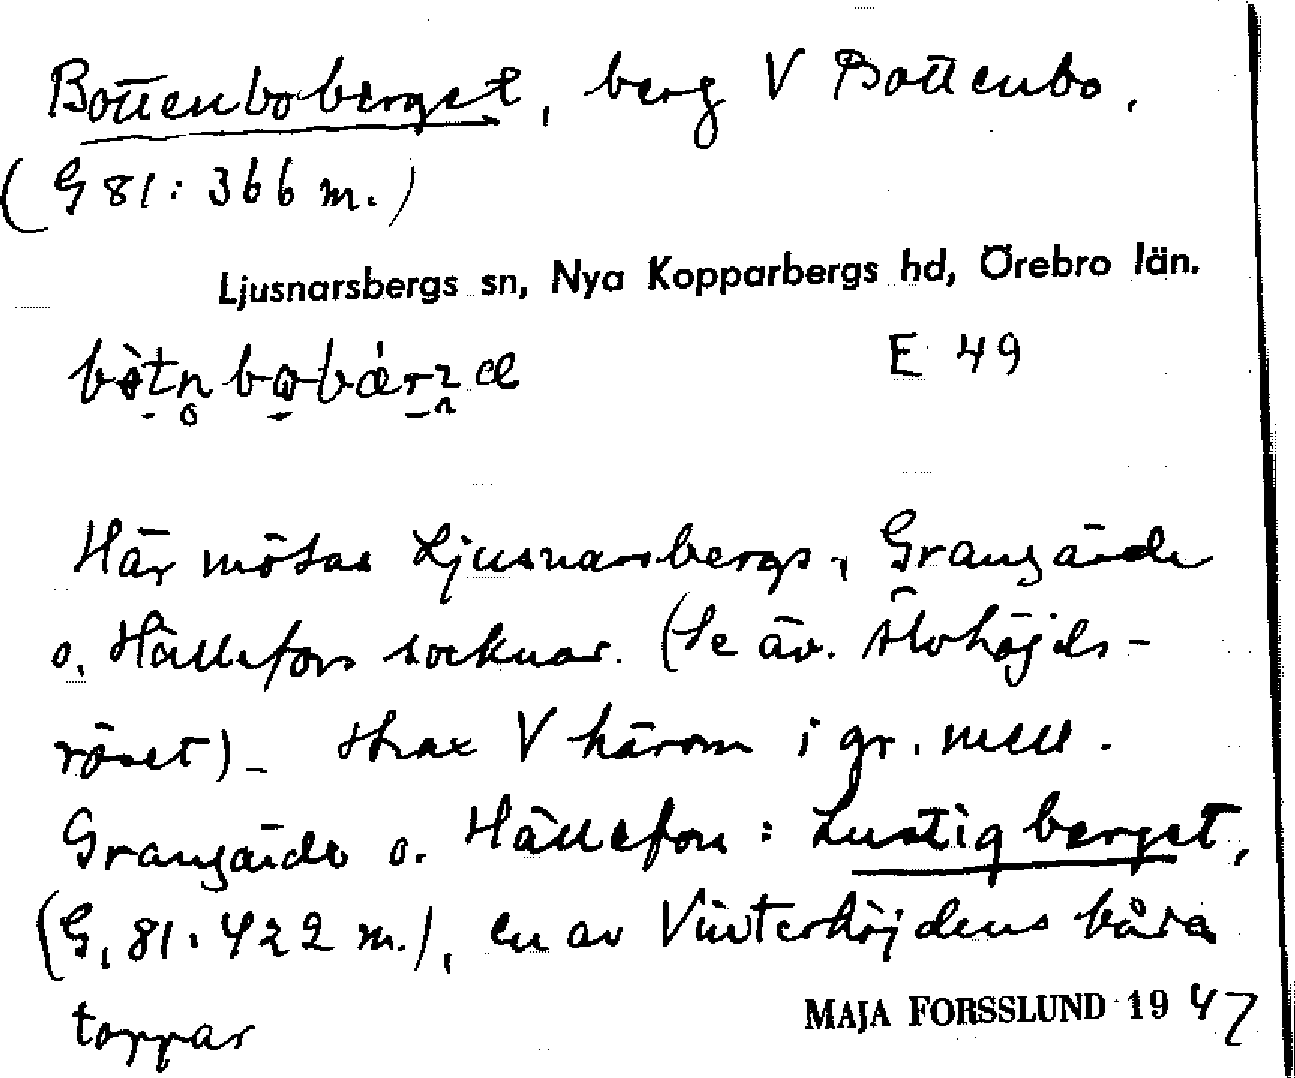 Bottenboberget, berg V Bottenbo.
(G 81: 366 m.)
Ljusnarsbergs sn, Nya Kopparbergs hd, Örebro län.
E 49
Här mötas Ljusnarsbergs-, Grangärde
o. Hällefors socknar. (Se äv. Älvhöjds-
röset)_ Strax V härom i gr. mell.
Grangärde o. Hällefors: Lustigberget,
(G, 81: 422 m.), en av Vinterhöjdens båda
toppar
MAJA FORSSLUND 1947